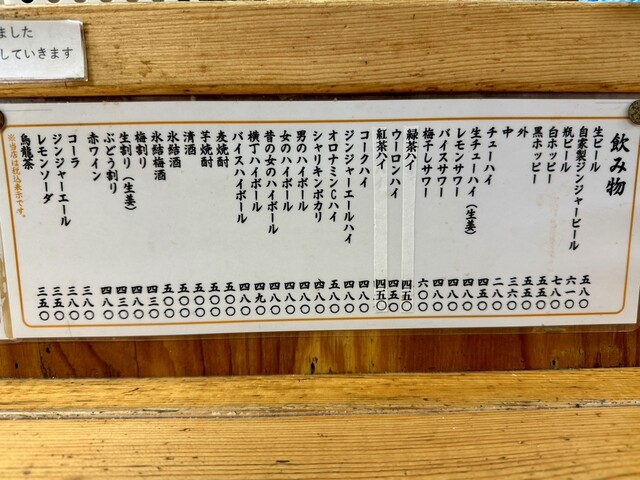 ました
していきます
飲み物
生ビール 五八〇
自家製ジンジャービール 六一〇
瓶ビール 七八〇
白ホッピー 五五〇
黒ホッピー 五五〇
外 三六〇
中 二八〇
チューハイ 四五〇
生チューハイ(生姜) 四八〇
レモンサワー 四八〇
バイスサワー 四八〇
梅干しサワー 六〇〇
緑茶ハイ 四五〇
ウーロンハイ 四五〇
紅茶ハイ 四五〇
コークハイ 四八〇
ジンジャーエールハイ 四八〇
オロナミンCハイ 五八〇
シャリキンポカリ 四八〇
男のハイボール 四八〇
女のハイボール 四八〇
昔の女のハイボール 四八〇
横丁ハイボール 四九〇
バイスハイボール 四八〇
麦焼酎 五〇〇
芋焼酎 五〇〇
清酒 五〇〇
氷結酒 五〇〇
氷結梅酒 五〇〇
梅割り 四三〇
生割り(生姜) 四八〇
ぶどう割り 四三〇
赤ワイン 四八〇
コーラ 三八〇
ジンジャーエール 三八〇
レモンソーダ 三五〇
烏龍茶 三五〇
※当店は税込表示です。